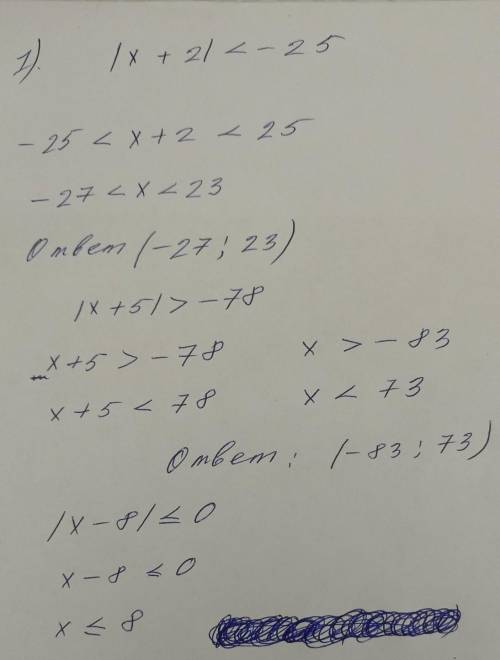 1). |x + 2| < - 25
- 25 < x + 2 < 25
- 27 < x < 23
Ответ (-27; 23)
|x + 5| > - 78
x + 5 > - 78 x > - 83
x + 5 < 78 x < 73
Ответ: (-83; 73)
|x - 8| ≤ 0
x - 8 ≤ 0
x ≤ 8